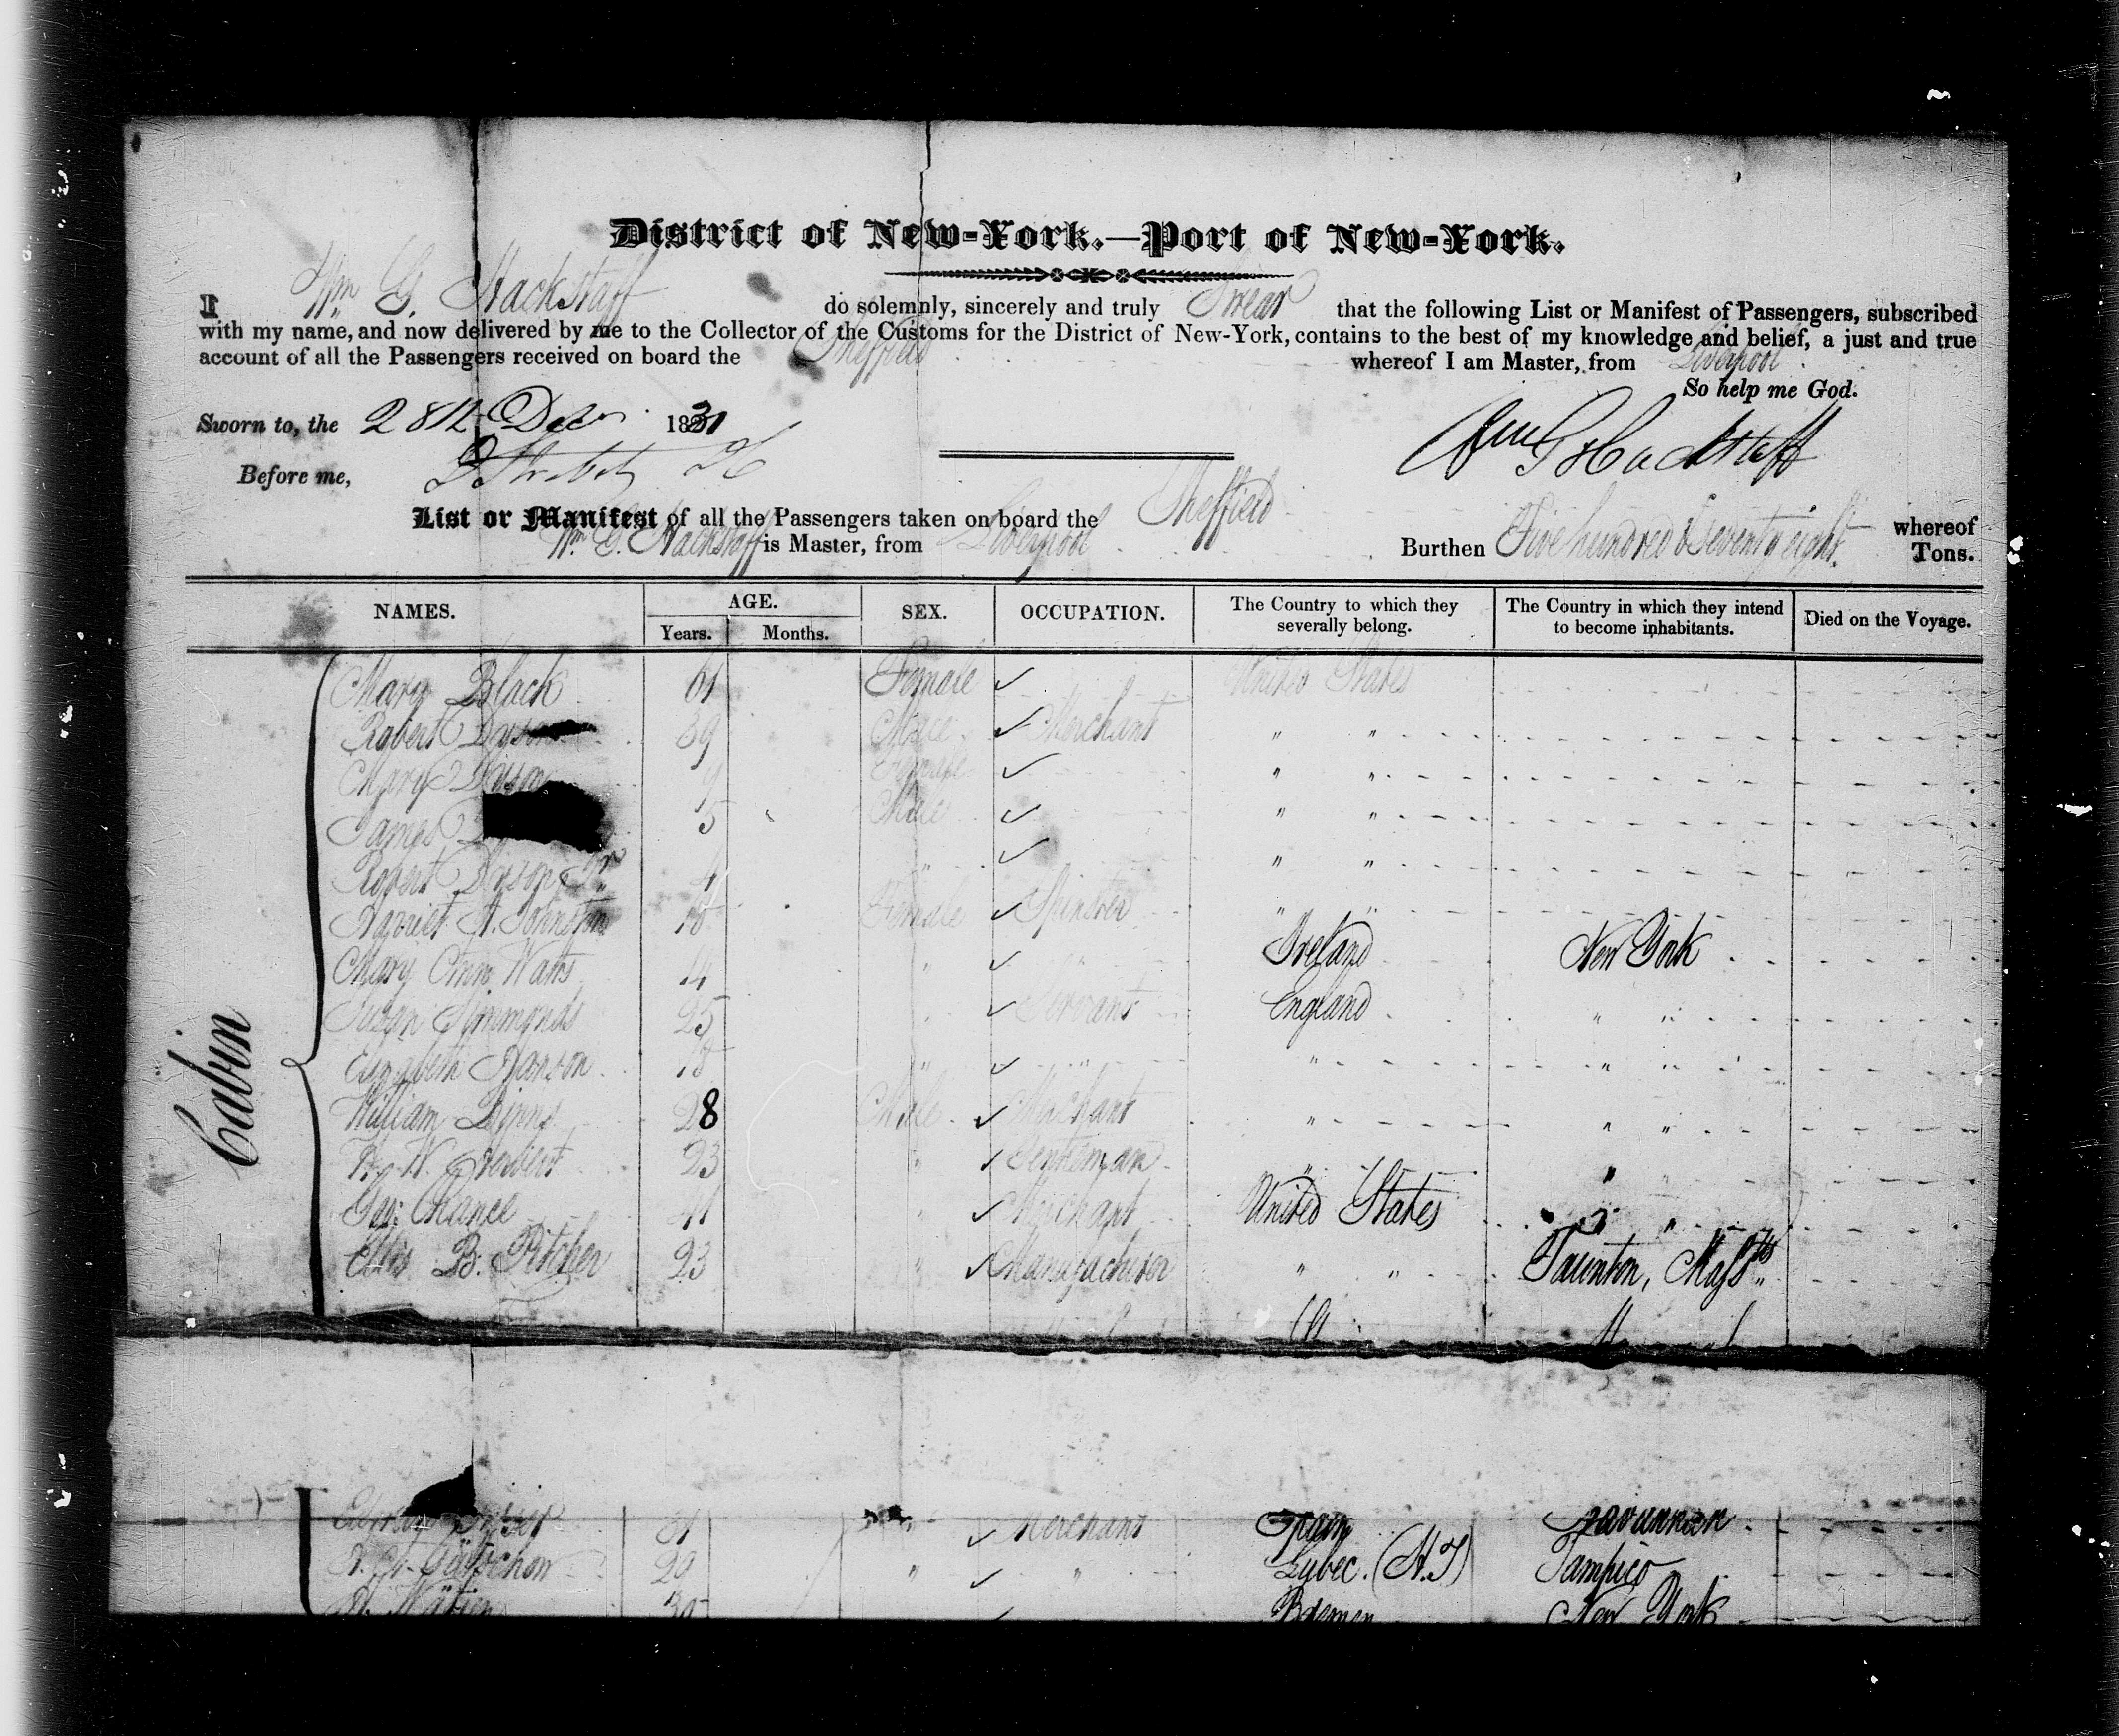 District of New-York.—Port of New-York.
I Wm G. Hackstaff do solemnly, sincerely and truly Swear that the following List or Manifest of Passengers, subscribed
with my name, and now delivered by me to the Collector of the Customs for the District of New-York, contains to the best of my knowledge and belief, a just and true
account of all the Passengers received on board the Sheffield whereof I am Master, from Liverpool
So help me God.
Sworn to, the 28th Dec 1831
Wm G Hackstaff
Before me,
List or Manifest of all the Passengers taken on board the Sheffield whereof
Wm G. Hackstaff is Master, from Liverpool Burthen Five hundred & Seventy eight Tons.
NAMES. AGE. Years. Months. SEX. OCCUPATION. The Country to which they severally belong. The Country in which they intend to become inhabitants. Died on the Voyage.
Cabin
Mary Black 61 Female ✓ United States
Robert Dyson 39 Male ✓ Merchant " "
Mary Dyson 9 Female ✓ " "
James 5 Male ✓ " "
Robert Dyson Jr 4 " ✓ " "
Harriet A. Johnston 18 Female ✓ Spinster " "
Mary Ann Watts 14 " ✓ " Ireland New York
Susan Simmonds 25 " ✓ Servant England " "
Elizabeth 18 " ✓ " " " "
William Binns 28 Male ✓ Merchant " " "
H. W. Herbert 23 " ✓ Gentleman " " "
Geo: Chance 41 " ✓ Merchant United States " "
Otis B. Pitcher 23 " ✓ Manufacturer " " Taunton, Massts
31 " ✓ Merchant Spain Savannah
29 " ✓ " Lubec. (H.T) Tampico
✓ Bremen New York